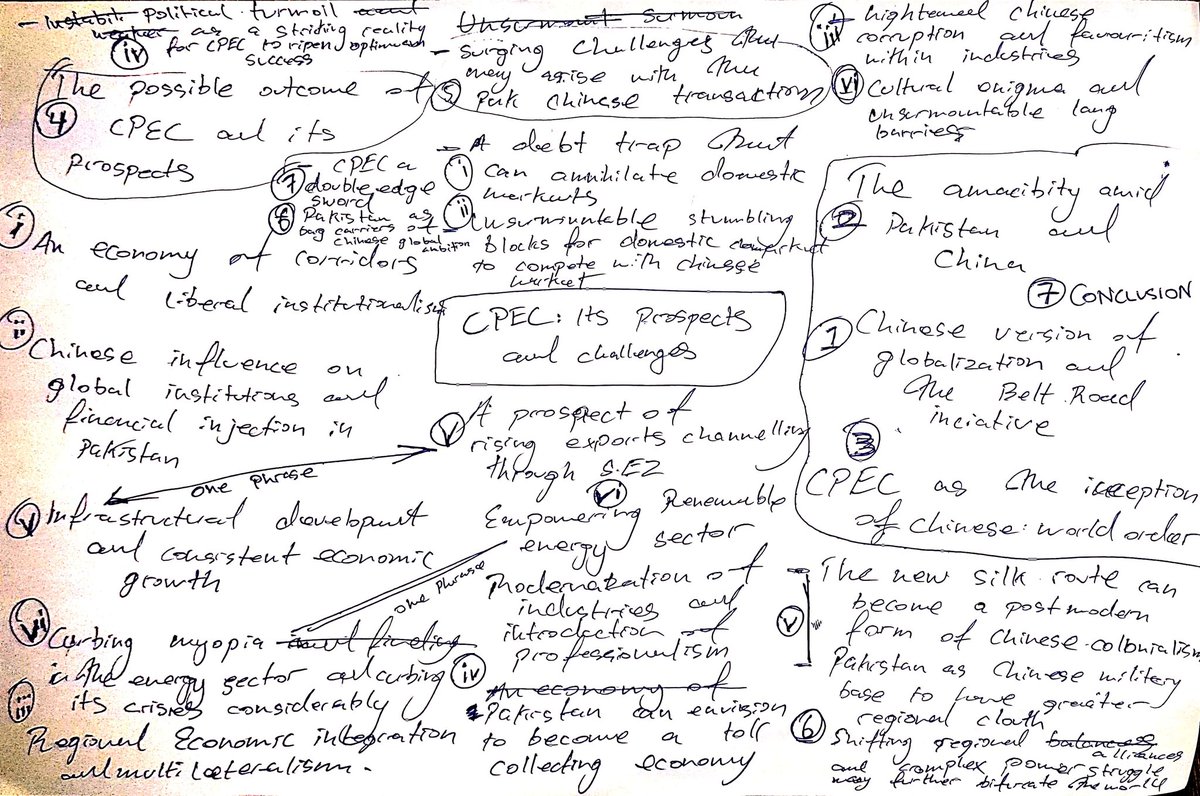 - political turmoil
as a striding reality
iv for CPEC to ripen optimum
success
The possible outcome of
4 CPEC and its
Prospects
7 - CPEC a
double edge
sword
8 Pakistan as
bag carriers of
Chinese global ambition
i An economy of corridors
and Liberal institutionalism
ii Chinese influence on
global institutions and
financial injection in
Pakistan
one phrase
v Infrastructural developmnt
and consistent economic
growth
vii Curbing myopia and
in the energy sector and curbing
its crisies considerably
iii Regional Economic integration
and multilateralism.
Unsurmount
- Surging challenges that
may arise with the
5 Pak Chinese transactions
- A debt trap that
i can annihilate domestic
markets
ii - Unsurmountable stumbling
blocks for domestic market
to compete with chinese
market
CPEC: Its Prospects
and challenges
v A prospect of
rising exports channelling
through S.EZ
vi Empowering Renewable
energy sector
one phrase
Modernazation of
industries and
introduction of
professionalism
iv An economy of
Pakistan can envision
to become a toll
collecting economy
iii - hightened chinese
corruption and favouritism
within industries
vi Cultural enigma and
unsurmountable lang
barriers
The amacibity amid
2 Pakistan and
China
7 CONCLUSION
1 Chinese version of
globalization and
the Belt Road
inciative
3
CPEC as the inception
of chinese world order
v - The new silk route can
become a post modern
form of chinese colonialism
- Pakistan as Chinese military
base to have greater
regional clouth
6 Shifting regional balances alliances
and complex power struggle
may further bifurcate the world